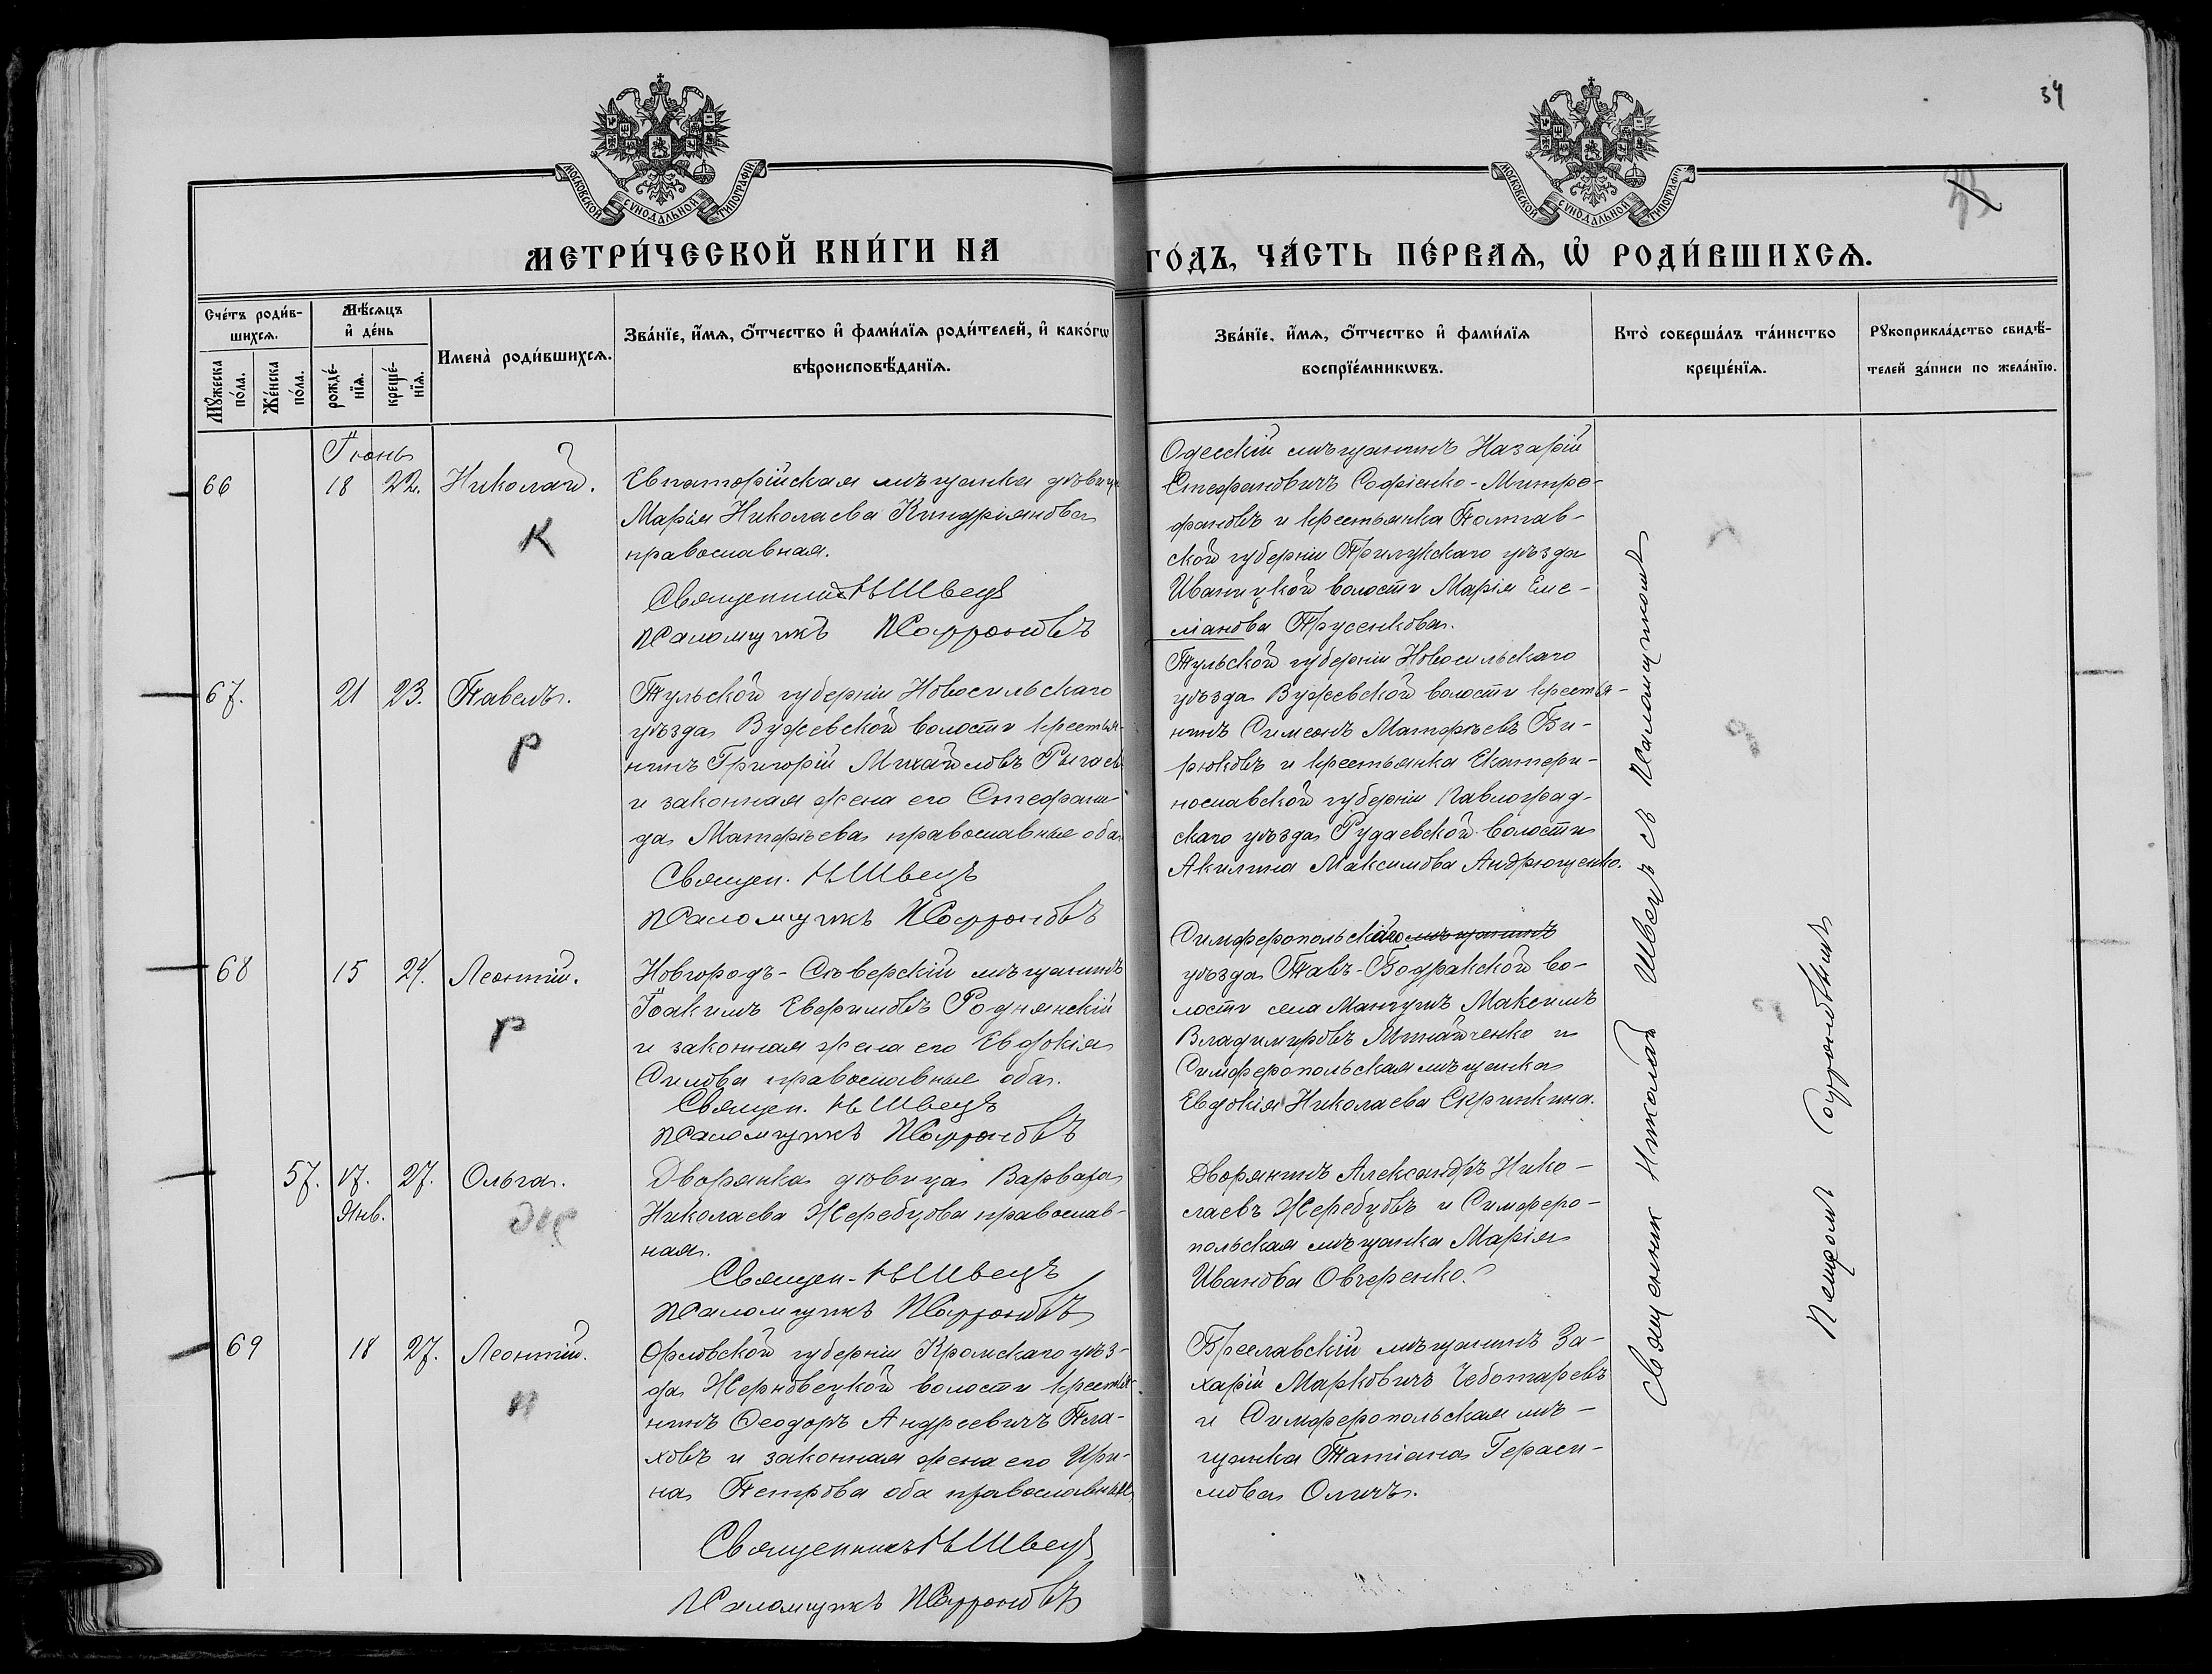 34
МОСКОВСКОЙ СѴНОДАЛЬНОЙ ТИПОГРАФІИ
МОСКОВСКОЙ СѴНОДАЛЬНОЙ ТИПОГРАФІИ
МЕТРИ́ЧЕСКОЙ КНИ́ГИ НА
ГО́ДЪ, ЧА́СТЬ ПЕ́РВАѦ, Ѡ҆ РОДИ́ВШИХСѦ.
Сче́тъ роди́в-
шихсѧ.
Мꙋ́жеска по́ла.
Же́нска по́ла.
Мѣ́сѧцъ
и҆ де́нь
рожде́-
нїѧ.
креще́-
нїѧ.
Имена̀ роди́вшихсѧ.
Зва́нїе, и҆́мѧ, ѻ҆́тчество и҆ фами́лїѧ роди́телей, и҆ како́гѡ
вѣроисповѣ́данїѧ.
Зва́нїе, и҆́мѧ, ѻ҆́тчество и҆ фами́лїѧ
воспрїе́мникѡвъ.
Кто̀ соверша́лъ та́инство
креще́нїѧ.
Рꙋкоприкла́дство свидѣ́-
телей за́писи по жела́нїю.
Іюнь
66
18
22.
Николай.
К
Евпаторійская мѣщанка дѣвица
Марія Николаева Киндріянова
православная.
Священникъ Н Швецъ
Псаломщикъ П Софроновъ
Одесскій мѣщанинъ Назарій
Стефановичъ Софіенко-Митро-
фановъ и крестьянка Полтав-
ской губерніи Прилукскаго уѣзда
Иваницкой волости Марія Еме-
ліанова Трусенкова.
67.
21
23.
Павелъ.
Р
Тульской губерніи Новосильскаго
уѣзда Вужевской волости крестья-
нинъ Григорій Михайловъ
и законная жена его Стефани-
да Матфѣева православные оба
Священ. Н Швецъ
Псаломщикъ П Софроновъ
Тульской губерніи Новосильскаго
уѣзда Вужевской волости крестья-
нинъ Симеонъ Матфѣевъ Би-
рюковъ и крестьянка Екатери-
нославской губерніи Павлоград-
скаго уѣзда Рудаевской волости
Акилина Максимова Андрющенко.
68
15
24.
Леонтій.
Р
Новгородъ-Сѣверскій мѣщанинъ
Іоакимъ Евфимовъ Роднянскій
и законная жена его Евдокія
Симова православные оба.
Священ. Н Швецъ
Псаломщикъ П Софроновъ
Симферопольскаго мѣщанинъ
уѣзда Тавъ-Бодракской во-
лости села Мангушъ Максимъ
Владимировъ Минайченко и
Симферопольская мѣщанка
Евдокія Николаева Скрипкина.
57.
17.
Янв.
27.
Ольга.
Ж
Дворянка дѣвица Варвара
Николаева Жеребцова православ-
ная.
Священ. Н Швецъ
Псаломщикъ П Софроновъ
Дворянинъ Александръ Нико-
лаевъ Жеребцовъ и Симферо-
польская мѣщанка Марія
Иванова Овчеренко.
69
18
27.
Леонтій.
П
Орловской губерніи Кромскаго уѣз-
да Жерновецкой волости крестья-
нинъ Ѳеодоръ Андреевичъ Пла-
ховъ и законная жена его Ири-
на Петрова оба православные
Священникъ Н Швецъ
Псаломщикъ П Софроновъ
Бреславскій мѣщанинъ За-
харій Марковичъ Чеботаревъ
и Симферопольская мѣ-
щанка Татіана Гераси-
мова
Священник Николай Швецъ съ Псаломщикомъ
Петромъ Софроновымъ